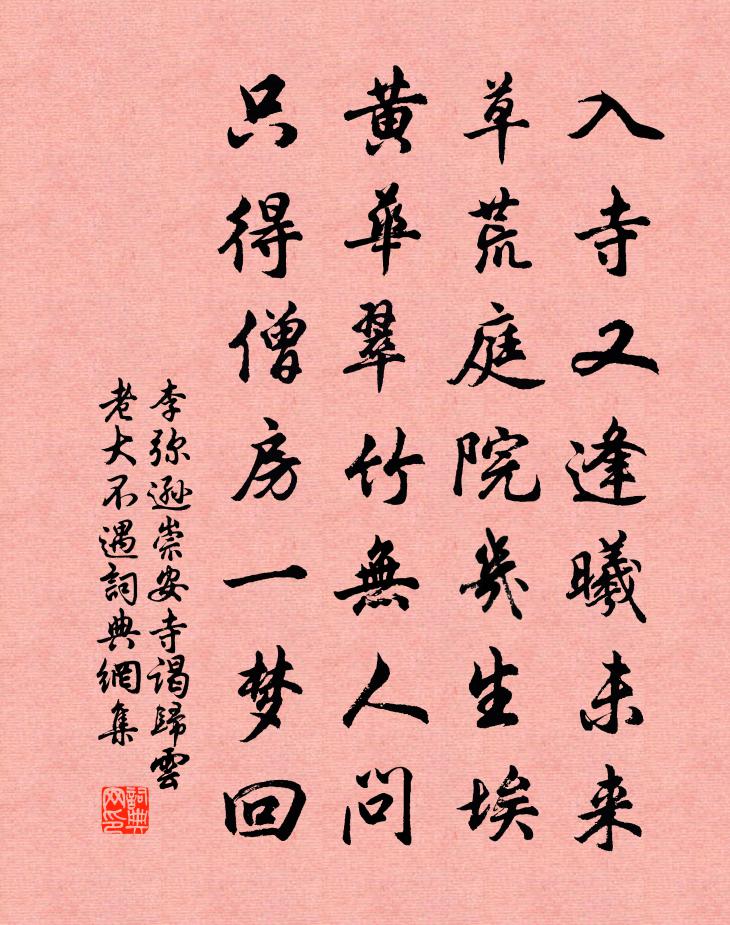 入寺又逢曦未来
草荒庭院几生埃
黄华翠竹無人問
只得僧房一梦回
李弥遜崇安寺謁歸雲
老大不遇詞典網集
詞典网印